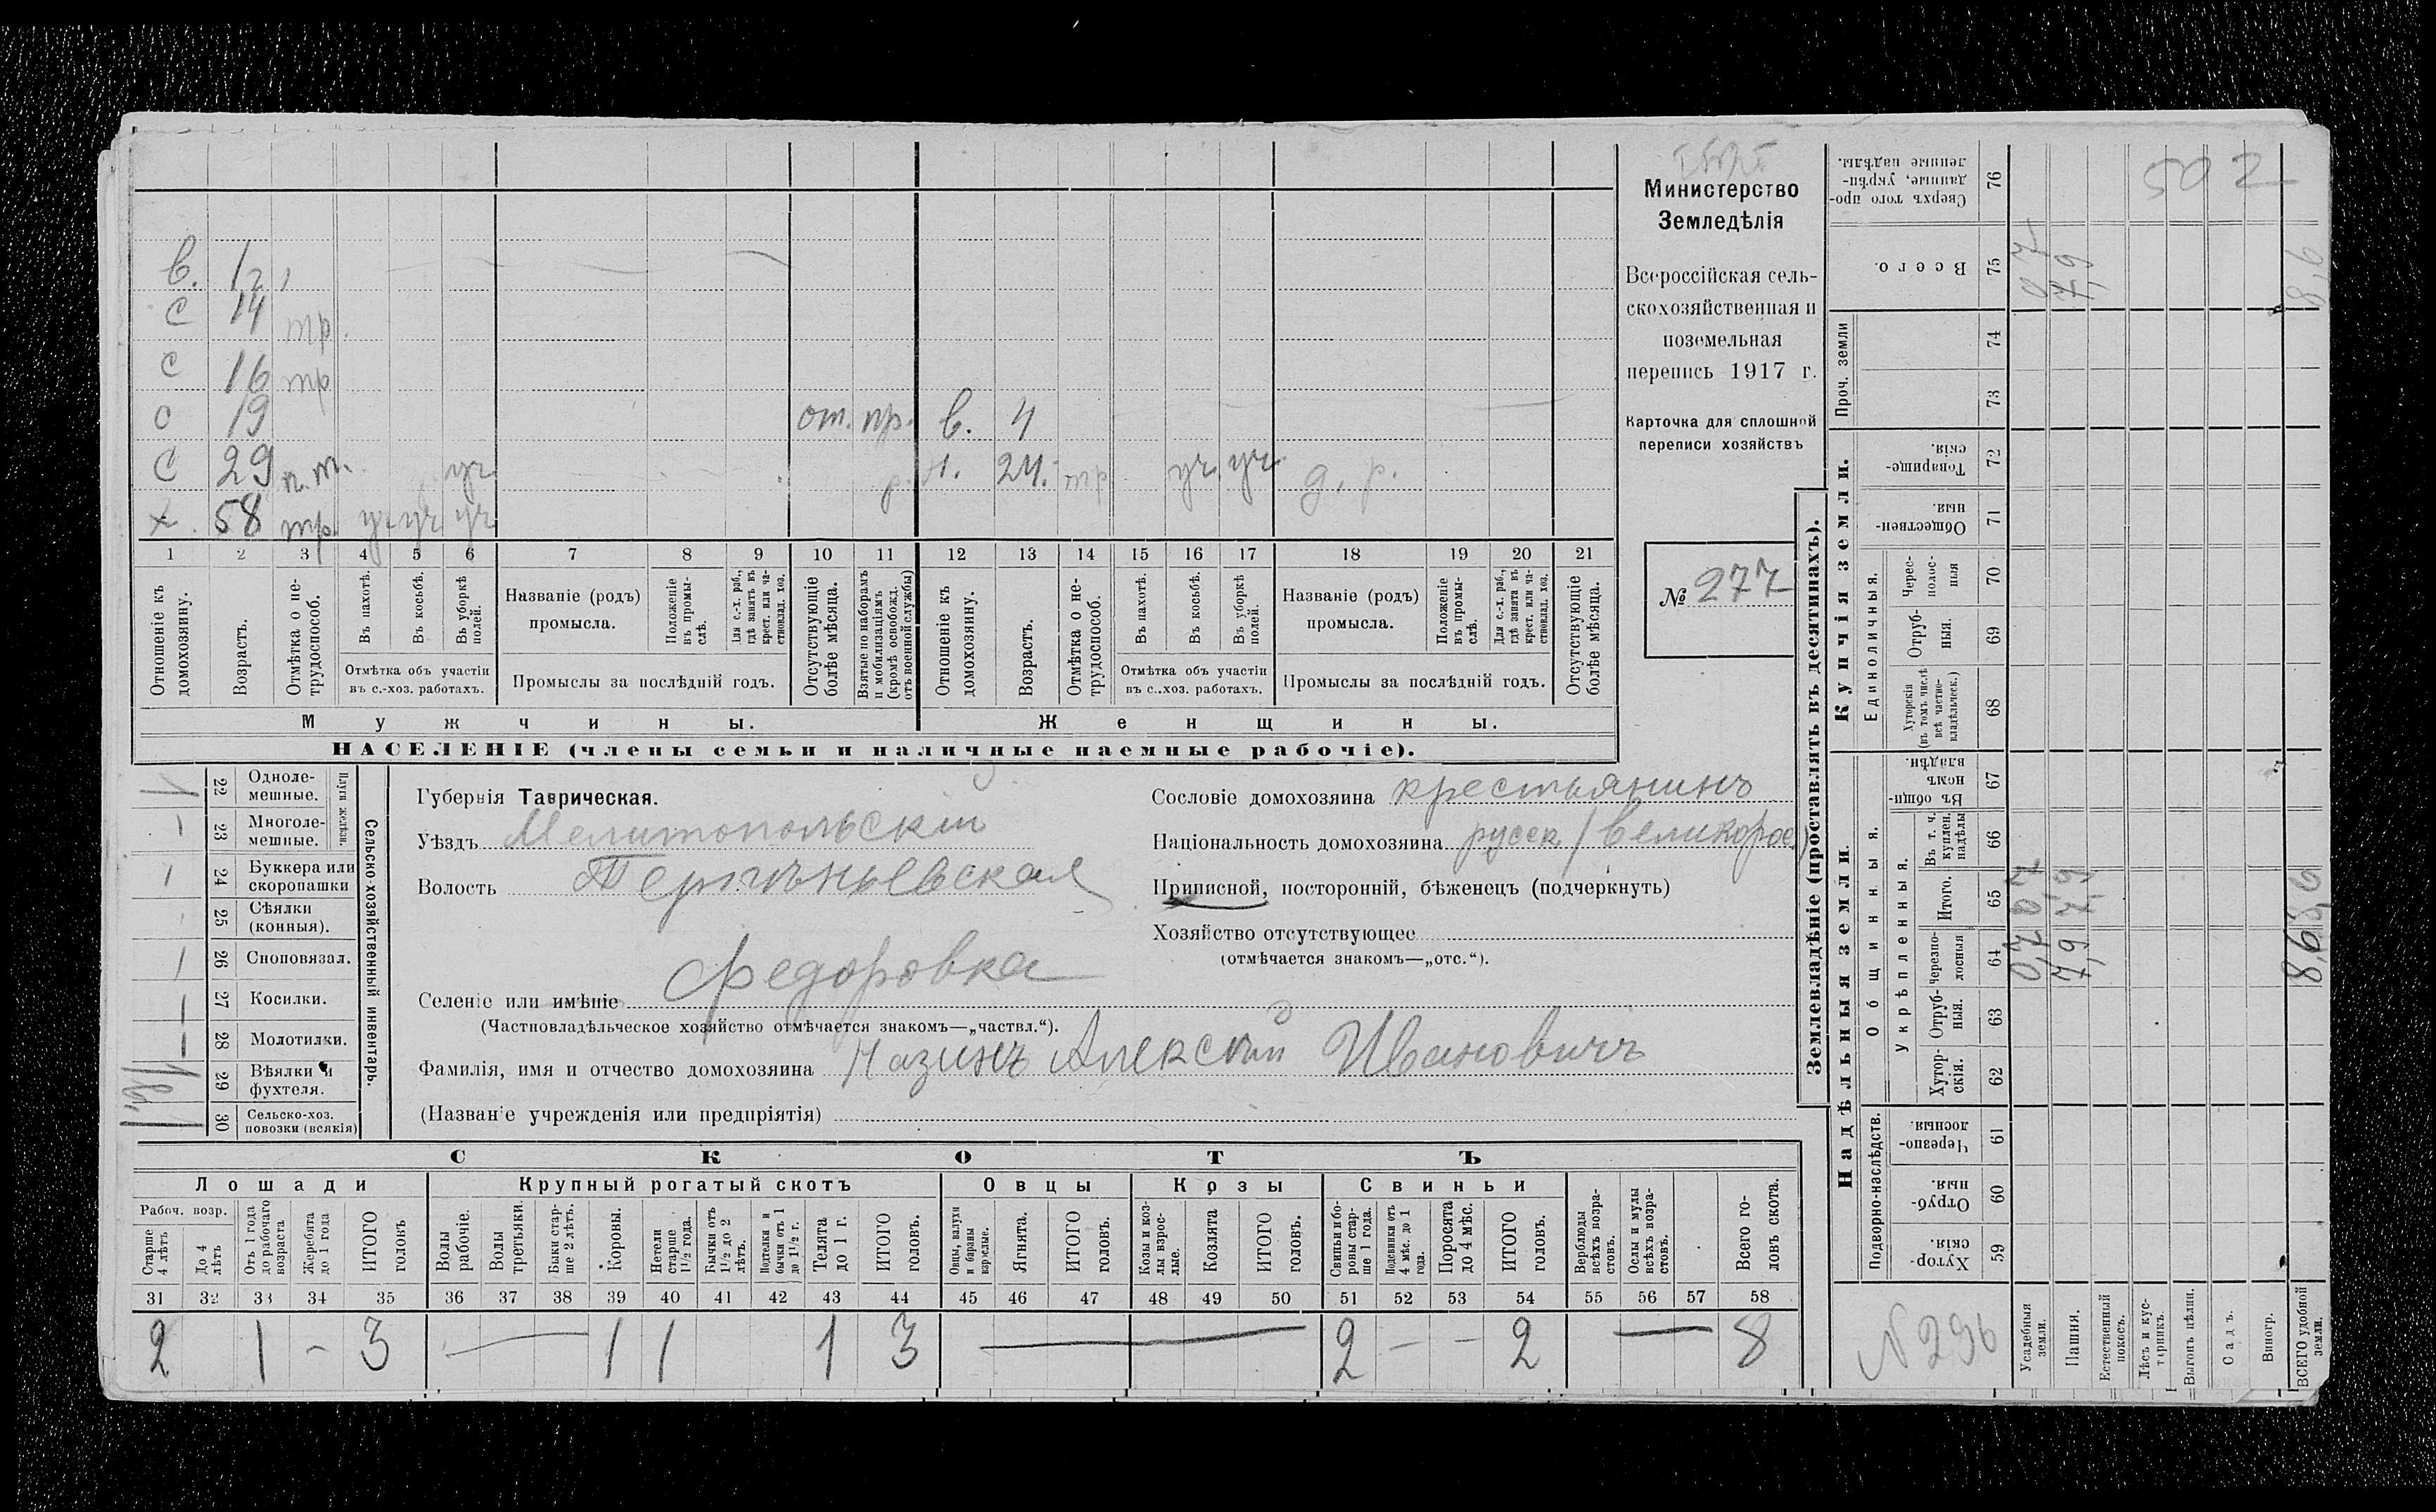 Министерство
Земледѣлія
Всероссійская сель-
скохозяйственная и
поземельная
перепись 1917 г.
Карточка для сплошной
переписи хозяйствъ
№ 277
в. 12
с 14 тр.
с 16 тр
с 19 от. пр. в. 4
с 29 п. т. уч. 24. тр уч. уч. д. р.
х. 58 тр. уч уч уч
1 2 3 4 5 6 7 8 9 10 11 12 13 14 15 16 17 18 19 20 21
Отношеніе къ домохозяину.
Возрастъ.
Отмѣтка о не-трудоспособ.
Въ пахотѣ.
Въ косьбѣ.
Въ уборкѣ полей.
Отмѣтка объ участіи въ с.-хоз. работахъ.
Названіе (родъ) промысла.
Положеніе въ промы-слѣ.
Для с.-х. раб., гдѣ занятъ въ крест. или ча-стновлад. хоз.
Промыслы за послѣдній годъ.
Отсутствующіе болѣе мѣсяца.
Взятые по наборамъ и мобилизаціямъ (кромѣ освобожд. отъ военной службы)
Отношеніе къ домохозяину.
Возрастъ.
Отмѣтка о не-трудоспособ.
Въ пахотѣ.
Въ косьбѣ.
Въ уборкѣ полей.
Отмѣтка объ участіи въ с..хоз. работахъ.
Названіе (родъ) промысла.
Положеніе въ промы-слѣ.
Для с.-х. раб., гдѣ занята въ крест. или ча-стновлад. хоз.
Промыслы за послѣдній годъ.
Отсутствующіе болѣе мѣсяца.
Мужчины. Женщины.
НАСЕЛЕНІЕ (члены семьи и наличные наемные рабочіе).
Сельско-хозяйственный инвентарь.
Плуги желѣзн.
22 Одноле-мешные. 1
23 Многоле-мешные. -
24 Буккера или скоропашки 1
25 Сѣялки (конныя).
26 Сноповязал. 1
27 Косилки. —
28 Молотилки. —
29 Вѣялки и фухтеля.
30 Сельско-хоз. повозки (всякія)
Губернія Таврическая.
Уѣздъ Мелитопольскій
Волость
Селеніе или имѣніе Федоровка
(Частновладѣльческое хозяйство отмѣчается знакомъ—„частвл.“).
Фамилія, имя и отчество домохозяина Алексѣй Ивановичъ
(Названіе учрежденія или предпріятія)
Сословіе домохозяина крестьянинъ
Національность домохозяина русск. (великорос.)
Приписной, посторонній, бѣженецъ (подчеркнуть)
Хозяйство отсутствующее
(отмѣчается знакомъ—„отс.“).
СКОТЪ
Лошади Крупный рогатый скотъ Овцы Козы Свиньи
Рабоч. возр.
Старше 4 лѣтъ
До 4 лѣтъ
Отъ 1 года до рабочаго возраста
Жеребята до 1 года
ИТОГО головъ
Волы рабочіе.
Волы третьяки.
Быки стар-ше 2 лѣтъ.
Коровы.
Нетели старше 1½ года.
Бычки отъ 1½ до 2 лѣтъ.
Подтелки и бычки отъ 1 до 1½ г.
Телята до 1 г.
ИТОГО головъ.
Овцы, валухи и бараны взрослые.
Ягнята.
ИТОГО головъ.
Козы и коз-лы взрос-лые.
Козлята
ИТОГО головъ.
Свиньи и бо-ровы стар-ше 1 года.
Подсвинки отъ 4 мѣс. до 1 года.
Поросята до 4 мѣс.
ИТОГО головъ.
Верблюды всѣхъ возра-стовъ.
Ослы и мулы всѣхъ возра-стовъ.
Всего го-ловъ скота.
31 32 33 34 35 36 37 38 39 40 41 42 43 44 45 46 47 48 49 50 51 52 53 54 55 56 57 58
2 1 - 3 — 1 1 1 3 — 2 - - 2 — 8
Землевладѣніе (проставлять въ десятинахъ).
Надѣльныя земли.
Купчія земли.
Проч. земли
Подворно-наслѣдств.
Общинныя.
Укрѣпленныя.
Единоличныя.
76 Сверхъ того про-данные, укрѣп-ленные надѣлы.
75 Всего. 7,9 8,6
74
73
72 Товарище-скія
71 Обществен-ныя.
70 Черес-полос-ныя
69 Отруб-ныя.
68 Хуторскія (въ томъ числѣ всѣ частно-владѣльческ.)
67 Въ общи-номъ владѣн.
66 Въ т. ч. куплен. надѣлы
65 Итого. 0,7 7,9 8,6
64 черезпо-лосныя 0,7 7,9 8,6
63 Отруб-ныя.
62 Хутор-скія.
61 Черезпо-лосныя.
60 Отруб-ныя.
59 Хутор-скія.
Усадебныя земли.
Пашня.
Естественный покосъ.
Лѣсъ и кус-тарникъ.
Выгонъ цѣлин.
Садъ.
Виногр.
ВСЕГО удобной земли.
502
N 296